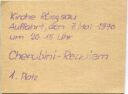 Kirche Rüegsau
Auffahrt, den 7. Mai 1970
um 20.15 Uhr
Cherubini-Requiem
1. Platz